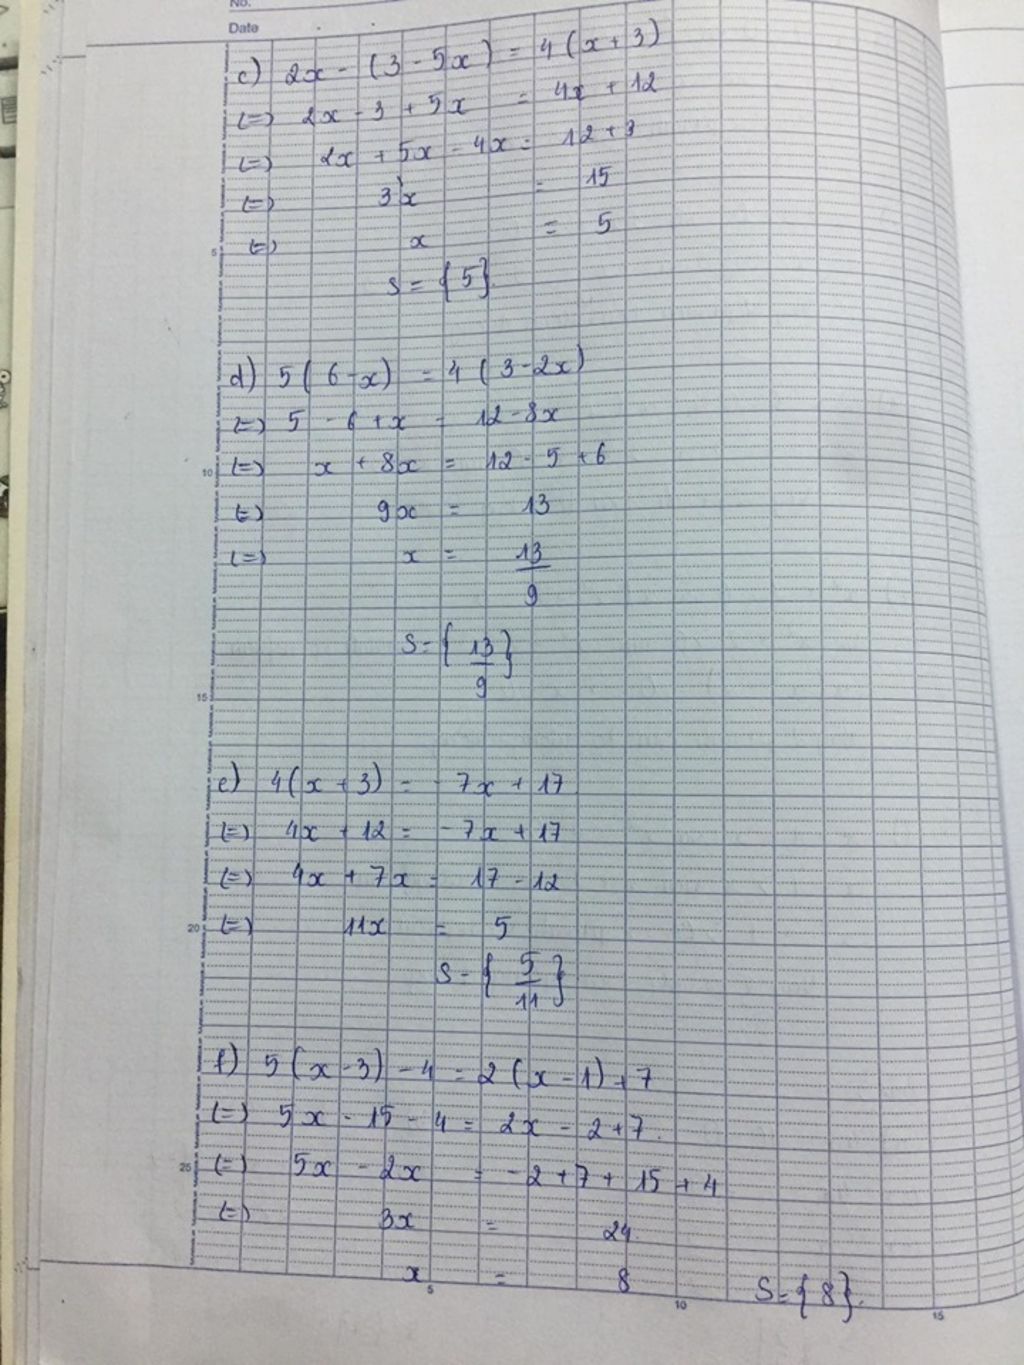 No.
Date
c) 2x - (3 - 5x) = 4(x + 3)
(=) 2x - 3 + 5x = 4x + 12
(=) 2x + 5x - 4x = 12 + 3
(=) 3x = 15
(=) x = 5
5
S = {5}
d) 5(6 - x) = 4(3 - 2x)
(=) 5 - 6 + x = 12 - 8x
10
(=) x + 8x = 12 - 5 + 6
(=) 9x = 13
(=) x = 13/9
S = {13/9}
15
e) 4(x + 3) = - 7x + 17
(=) 4x + 12 = - 7x + 17
(=) 4x + 7x = 17 - 12
20
(=) 11x = 5
S = {5/11}
f) 5(x - 3) - 4 = 2(x - 1) + 7
(=) 5x - 15 - 4 = 2x - 2 + 7.
25
(=) 5x - 2x = -2 + 7 + 15 + 4
(=) 3x = 24.
x = 8 S = {8}.
5 10 15